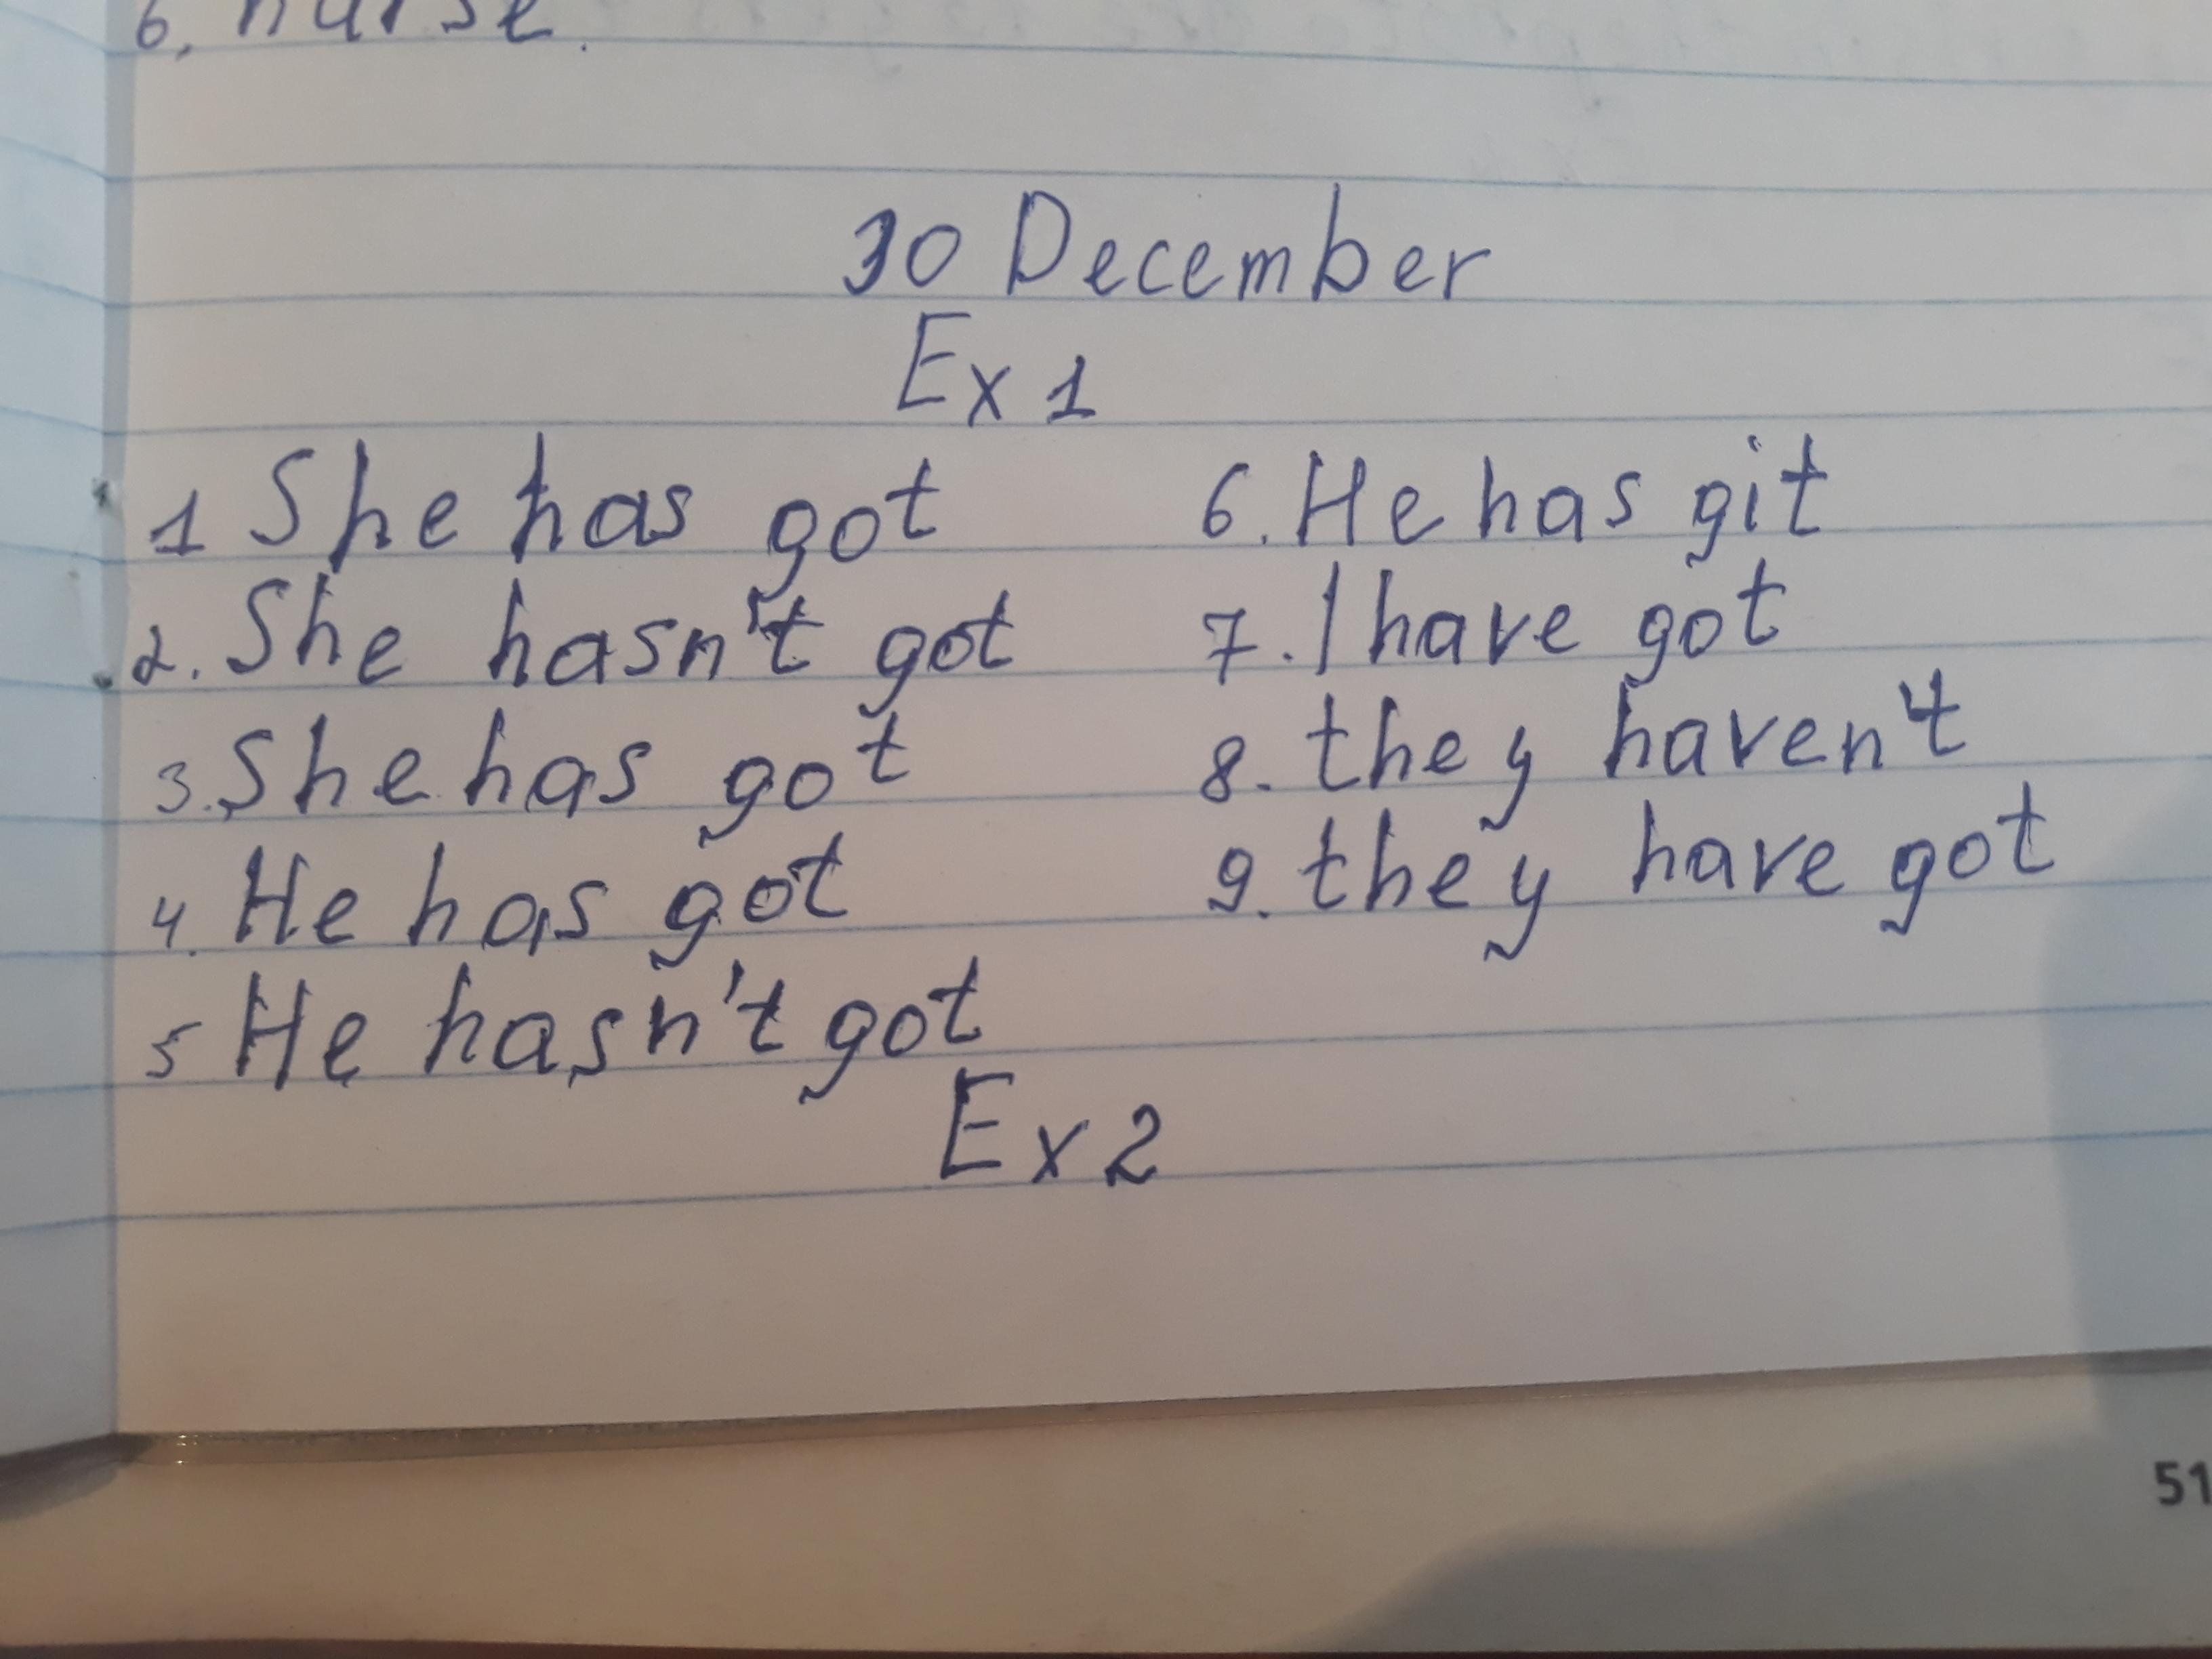 6. nurse.
30 December
Ex 1
1 She has got
2. She hasn't got
3. She has got
4. He has got
5 He hasn't got
6. He has git
7. I have got
8. they haven't
9. they have got
Ex 2
51